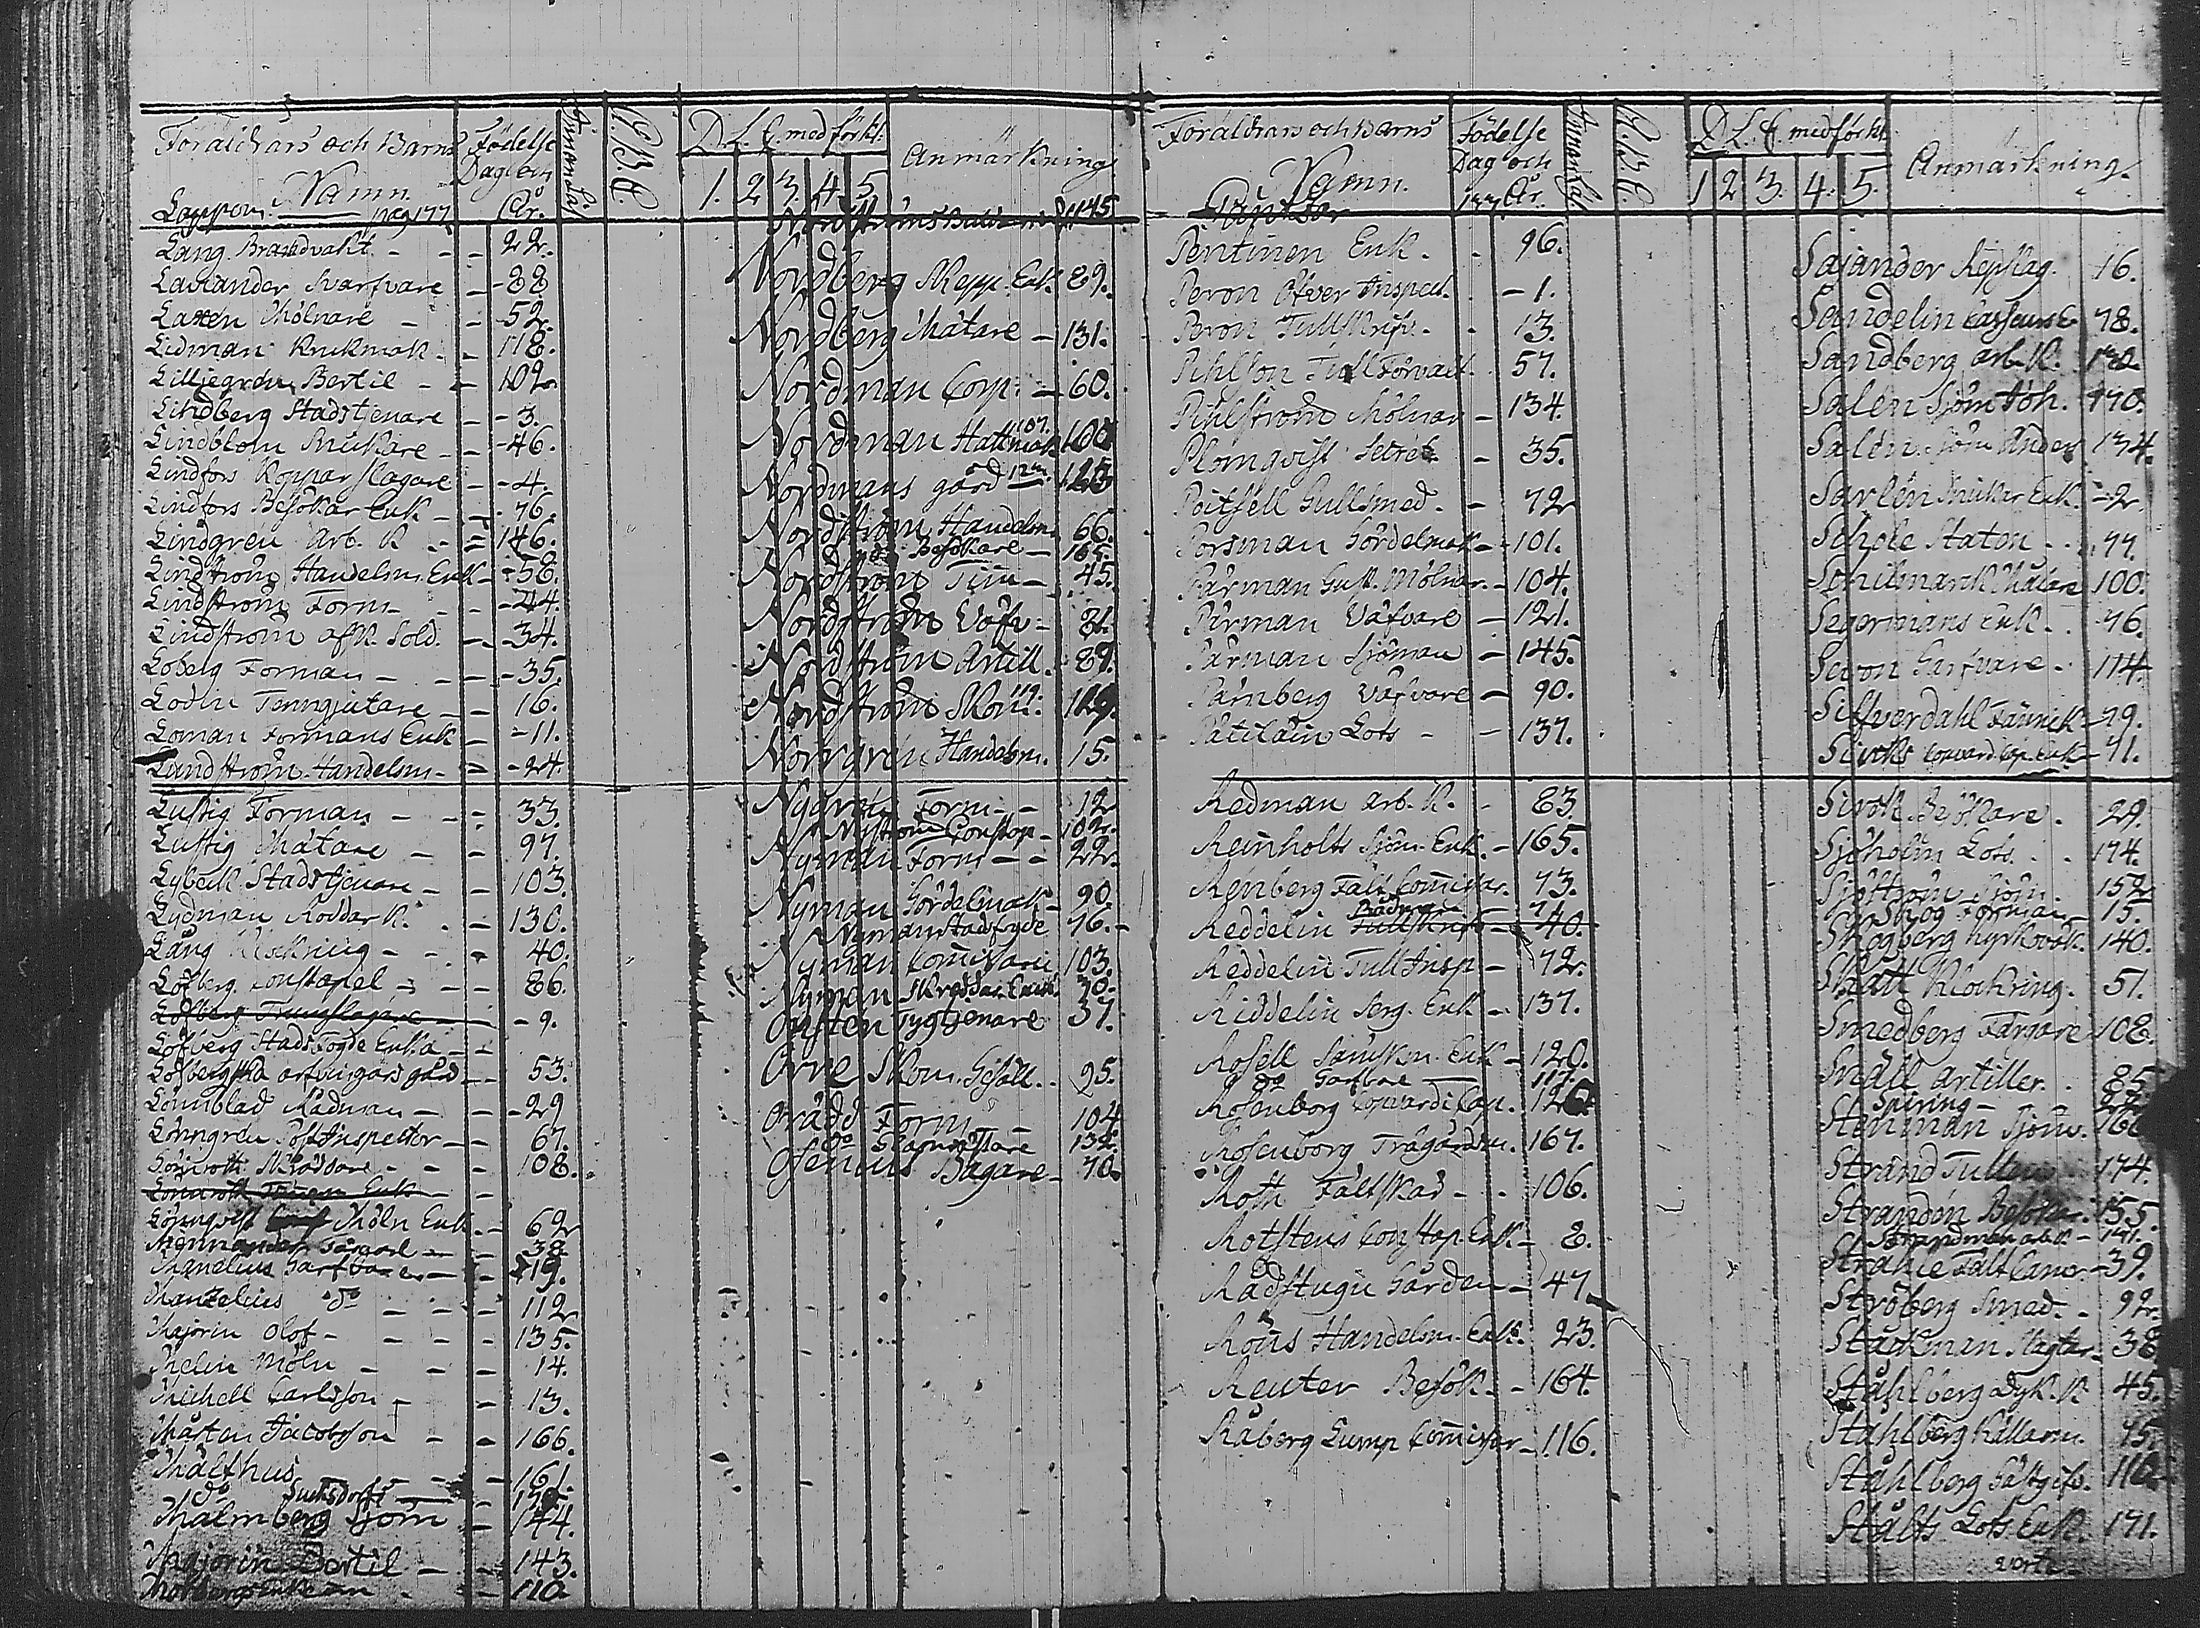 Föräldrars och Barns Namn.
Födelse Dag och År.
D. L. C. med förkl.
1. 2 3. 4. 5
Anmärkning
Lang Brandvakt - - 22.
Lavander Svarfvare - 88
Laxen Mölnare - - 52.
Lidman Krukmak. - 118.
Lilljegren Bertil - - 102.
Lindberg Stadstjenare - 3.
Lindblom Snickare - - 46.
Lindfors Kopparslagare - 4.
Lindfors Besökar Enk. - 76.
Lindgren Arb. K. - 146.
Lindström Handelsm. Enk - 58.
Lindström Form. - - 44.
Lindström afsk. Sold. - 34.
Loberg Forman - - 35.
Lodin Tenngjutare - - 16.
Loman Formans Enk - - 11.
Lundström Handelsm. - - 24.
Lustig Forman - - 33.
Lustig Mätare - - 97.
Lybeck Stadstjenare - - 103.
Lydman Roddar K. - 130.
Lång Klockring - - 40.
Löfberg Constapel - - 86.
Löfberg Trumslagare - 9.
Löfberg Stads Fogde Enka - -
Löfbergska arfvingars gård - 53.
Lönnblad Rådman - - 29
Lönngren Postinspector - 67.
Lönnroth Skräddare - - 108.
Lönnqvist Möln Enk. - 62
Mennander Garfvare - 38
Manelius Garfvare - - 119.
Manzelius do - - 112
Majorin Olof - - - 135.
Melin Möln - - 14.
Michell Carlsson - - 13.
Mårten Jacobsson - - 166.
Malthus - - 161.
do Suchsdorfs
Malmberg Sjöm - 144.
Majorin Bertil - - 143.
110.
Nordströms 145
Nordberg Skepp. Enk. 89.
Nordberg Mätare - 131.
Nordman Corp. - 60.
Nordman Hattmak. 107.
Nordmans gård
Nordström Handelsm. 66.
do Besökare - 165.
Nordström Tim - 45.
Nordström Väfv - 81.
Nordström Artill. 89.
Nordström Skom. 119.
Norrgren Handelsm. 15.
Nygren Form - - 12
Nyström Constap - 102.
Nyman Form - - 22.
Nyman Gördelmak - 90.
Nyman Stadsfogde 76.
Nyman Commissarie 103.
Nyman Skräddar Enk. 70.
Onsten Tygtjenare 37.
Orre Skom. Gesäll. 95.
Orädd Form - 104
do Glasmästare 132.
Osenius Bagare - 70.
Föräldrars och Barns Namn.
Födelse Dag och År.
D. L. C. med förkl.
1 2 3. 4. 5.
Anmärkning.
Pentinen Enk. - 96.
Peron Öfver Inspect. - 1.
Peron Tullskrifv. - 13.
Pihlson Tull Förvalt. 57.
Pihlström Mölnar - 134.
Plomqvist Secret. - 35.
Poitsell Gullsmed. - 72
Porsman Gördelmak - 101.
Pärman Gust. Mölnar. - 104.
Pärman Väfvare - 121.
Pärman Sjöman - 145.
Pärnberg Väfvare - 90.
Lots - - 137.
Redman Arb. K. - 83.
Reinholts Sjöm. Enk. - 165.
Renberg Fält Commissar. 73.
Rådman 71.
Reddelin Tullskrifv - 40.
Reddelin Tull Insp - 72.
Riddelin Serg. Enk - 137.
Rosell Enk - 120.
do Garfvare 117.
Rosenborg Coopvardi Cap.
Rosenborg Trägårdsm. 167.
Roth Fältskär - - 106.
Rotstens Constap. Enk. - 8.
Rådstugu Gården - 47.
Röns Handelsm. Enk. 23.
Reuter Besök. - 164.
Råberg Lump Commissar - 116.
Sajander Repslag. 16.
Sandelin Casseurs E. 78.
Sandberg arb. K.
Salen Sjöm Joh. 170.
Salén Sjöm Anders 134.
Sarlén Snickar Enk - 2
Staten - - 77.
Schilmark Mätare 100.
Segermans Enk. - 76.
Sevon Garfvare - 114.
Silfverdahl Fänrick - 79.
Coopvard. Cap. Enk - 71.
Sivon Besökare. 29.
Sjöholm Lots. - 174.
Sjöström Sjöm. 152
Skog Forman 15.
Skogberg Kyrkovakt. 140.
Skatt Klockring. 51.
Smedberg Färgare 108.
Snäll Artiller. - 85
Spiring -
Stenman Sjöm.
Strand Tullm 174.
Strandén Besökar. 155.
Strandman
Stråhle Fält Camr. - 39.
Ströberg Smed. - 92.
Starkman Magtar. 38
Ståhlberg Dyk. K. 45.
Ståhlberg Källarm. 75.
Ståhlberg Gästgifv. 110.
Stålts Lots Enk. 171.